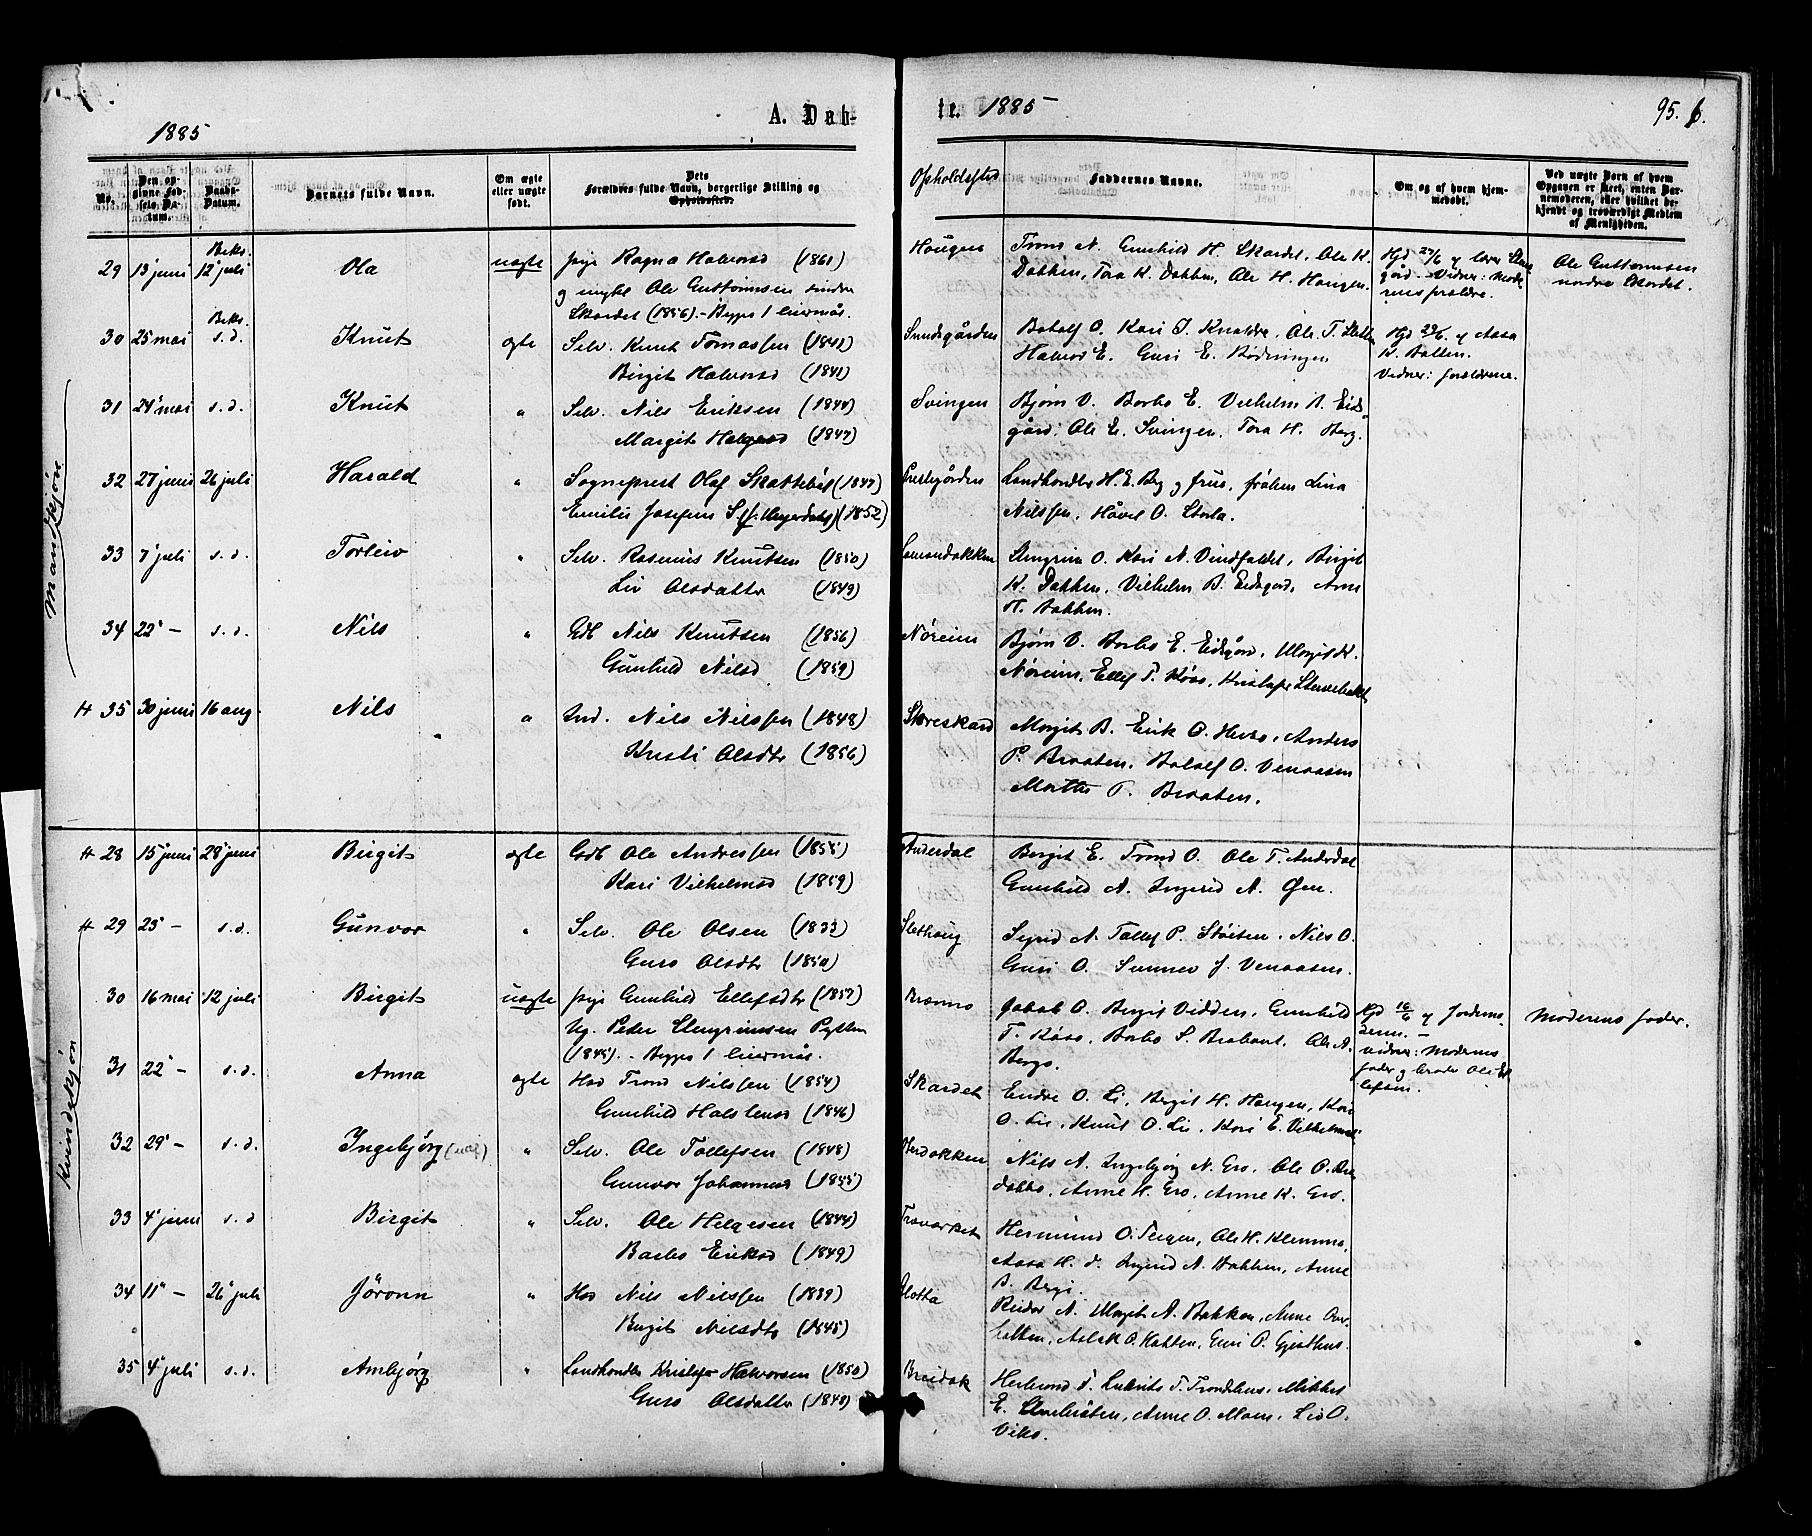 1885
A. Døb-
te. 1885
95. b.
No.
Den opgivne Fødsels Datum.
Daabs-Datum.
Barnets fulde Navn.
Om ægte eller uægte født.
Dets Forældres fulde Navn, borgerlige Stilling og Opholdssted.
Opholdssted
Faddernes Navne.
Om og af hvem hjemmedøbt.
Ved uægte Børn af hvem Opgaven er skeet, enten Barnemoderen, eller hvilket bekjendt og troværdigt Medlem af Menigheden.
Mandkjøn
29 13 juni Beks. 12 juli Ola uægte pige Ragna Halvorsd (1861)
og ungkl Ole Guttormsen nordre
Skardet (1856) - Begges 1 leiermål.
Haugen
Trond N. Gunhild H. Skardet, Ole K.
Dokken, Tora K. Dokken, Ole H. Haugen.
Ole Guttormsen
nordre Skardet.
30 25 mai Beks. s.d. Knut ægte Selv. Knut Tomassen (1841)
Birgit Halvorsd (1841)
Sundsgården
Halvor E. Guri E. Rødningen
Vidner: forældrene.
31 24 mai s.d. Knut " Selv. Nils Eriksen (1844)
Margit Helgesd (1847)
Svingen
Bjørn V. Barbo E. Vilhelm B. Eids-
gård, Ole E. Svingen, Tora H. Berg.
32 27 juni 26 juli Harald " Sogneprest Olaf Skattebøl (1847)
Emilie Josefine S. (f. Meyerdahl) (1852)
Prestegården
Landhandler H. E. Berg og frue, frøken Lina
Nilssen, Håvel O. Storla.
33 7 juli s.d. Torleiv " Selv. Rasmus Knutsen (1850)
Liv Olsdatter (1849)
Stengrim O. Kari N. Vindfaldet, Birgit
K. Dokken, Vilhelm B. Eidsgård, Arne
H. Bakken.
34 22 - s.d. Nils " Gdb Nils Knutsen (1856)
Gunhild Nilsd (1859)
Nøreim
Bjørn V. Barbo E. Eidsgård, Margit K.
Nøreim, Ellef T. Kåsa,
35 30 juni 16 aug. Nils " Ind. Nils Nilssen (1848)
Kristi Olsdtr (1856)
Støreskard
Margit B. Erik O. Anders
P. Braaten, Botolf O. Venaasen
Marthe P. Braaten.
Kvindekjøn
28 15 juni 28 juni Birgit ægte Gdb Ole Andersen (1855)
Kari Vilhelmsd (1859)
Anderdal
Bergit E. Trond O. Ole T. Anderdal
Gunhild A. Ingerid A. Øen.
29 23 - s.d. Gunvor " Selv. Ole Olsen (1833)
Guro Olsdtr (1850)
Slethaug
Sigrid N. Tollef P. Støiten, Nils O.
Guri O. Sunnev J. Venaasen.
30 16 mai 12 juli Birgit uægte pige Gunhild Ellefsdtr (1857)
Ug. Peder Stengrimsen Pytten
(1845) - Begges 1 leiermål.
Jakob O. Birgit Vidden, Gunhild
T. Kåsa, Barbo S. Brabant, Ole A.
Berge.
Hjd 16/6 af Jordemoderen. -
vidner: Moderens
fader og broder Ole Ellefsen.
Moderens fader.
31 22 - s.d. Anna ægte Hos Trond Nilssen (1854)
Gunhild Halstensd (1846)
Skardet
Endre O. Li, Birgit H. Haugen, Kari
O. Lie, Knut O. Lie, Kari E. Vilhelmsd
32 29 - s.d. Ingebjørg Selv. Ole Tollefsen (1848)
Gunvor Johannesd (1855)
Nils A. Ingebjørg N. Gro, Ole O.
Anne H. Gro, Anne K. Gro.
33 4 juni s.d Birgit " Selv. Ole Helgesen (1844)
Barbo Eriksd (1849)
Hermund O. Teigen, Ole H. Klemma,
Aasa H. d. Ingrid N. Bakken, Anne
B. Berge.
34 11 - 26 juli Jøronn " Hos Nils Nilssen (1839)
Birgit Nilsdtr (1845)
Slotta
Reidar N. Margit A. Bakken, Anne
Aslak O. Hatten, Guri O. Gjesthus.
35 4 juli s.d. Ambjørg " Landhandler Kristofer Halvorsen (1850)
Guro Olsdatter (1848)
Breidok
Herbrand T. Trondhus, Mikkel
E. Anne O. Moen, Liv O.
Viko.